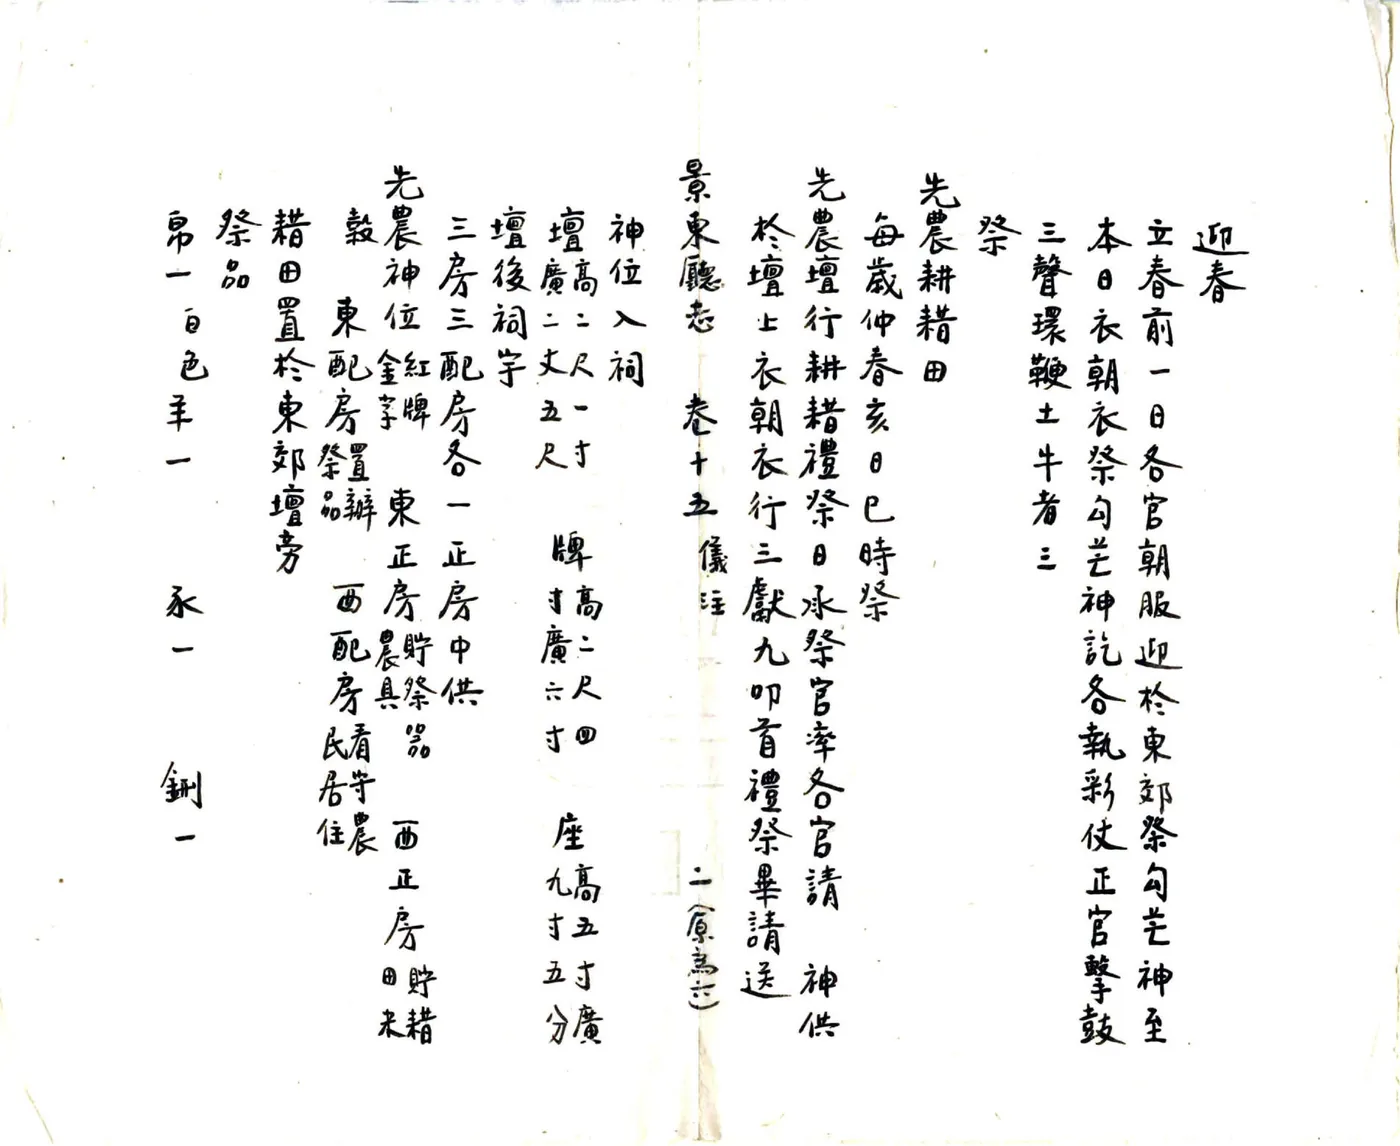 迎春
立春前一日各官朝服迎於東郊祭勾芒神至
本日衣朝衣祭勾芒神訖各執彩仗正官擊鼓
三聲環鞭土牛者三
祭
先農耕耤田
每歲仲春亥日巳時祭
先農壇行耕耤禮祭日承祭官率各官請 神供
於壇上衣朝衣行三獻九叩首禮祭畢請送
景東廳志 卷十五 儀注 二(原為六)
神位入祠
壇高二尺一寸廣二丈五尺 牌高二尺四寸廣六寸 座高五寸廣九寸五分
壇後祠宇
三房三配房各一正房中供
先農神位紅牌金字 東正房貯祭器農具 西正房貯耤田米
穀 東配房置辦祭品 西配房看守農民居住
耤田置於東郊壇旁
祭品
帛一白色羊一 豕一 鉶一